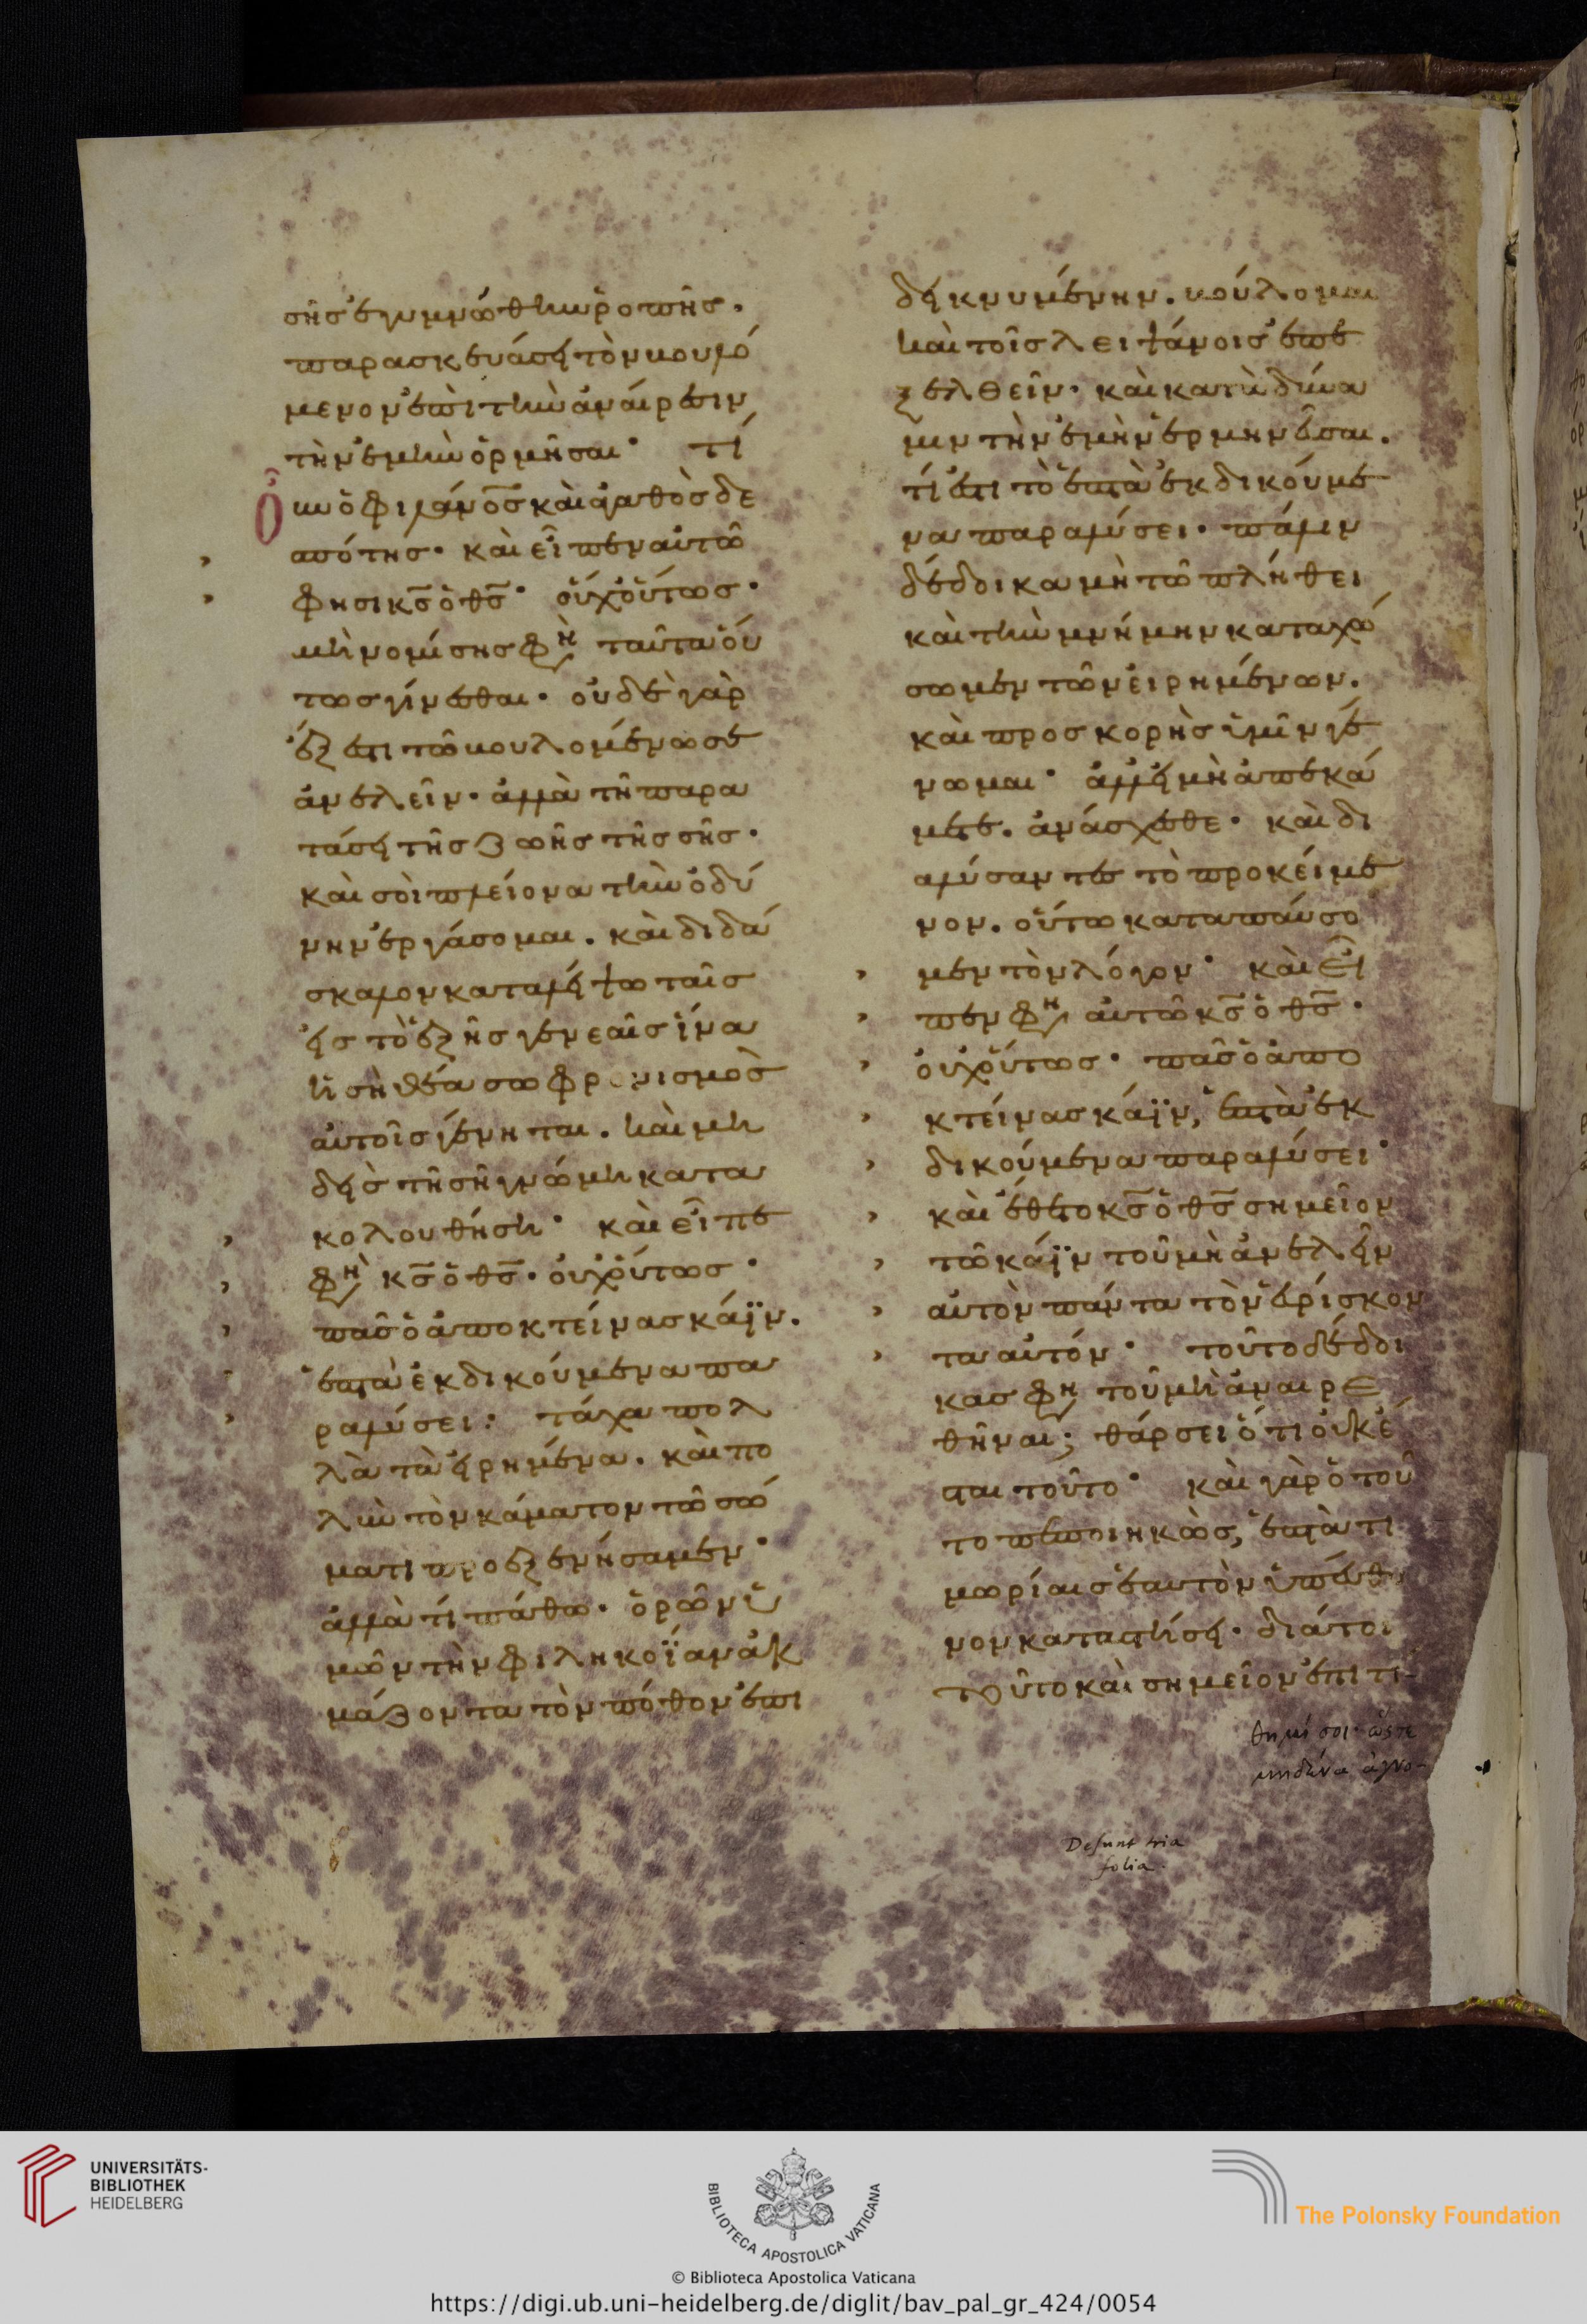 σῆς ἐγυμνώθην ῥοπῆς.
παρασκευάσει τὸν βουλό
μενον ἐπὶ τὴν ἀναίρεσιν
τὴν ἐμὴν ὁρμῆσαι· τί
οὖν ὁ φιλάνο̅ς̅ καὶ ἀγαθὸς δε
σπότης· καὶ εἶπεν αὐτῶ
φησι κ̅ς̅ ὁ θ̅ς̅· οὐχ οὕτως·
μὴ νομίσης φη ταῦτα οὕ
τως γίνεσθαι· οὐδὲ γὰρ
ἔξεστι τῶ βουλομένω σε
ἀνελεῖν· ἀλλὰ τῆ παρα
τάσει τῆς ζωῆς τῆς σῆς·
καὶ σοὶ πλείονα τὴν ὀδύ
νην ἐργάσομαι. καὶ διδά
σκαλον καταλείψω ταῖς
εἰς τὸ ἑξῆς γενεαῖς ἵνα
ἡ σὴ θέα σωφρονισμὸς
αὐτοῖς γένηται. καὶ μη
δεὶς τῆ σῆ γνώμη κατα
κολουθήση· καὶ εἶπε
φη κ̅ς̅ ὁ θ̅ς̅· οὐχ οὕτως·
πᾶς ὁ ἀποκτείνας κάϊν.
ἑπτὰ ἐκδικούμενα πα
ραλύσει: τάχα πολ
λὰ τὰ εἰρημένα. καὶ πο
λὺν τὸν κάματον τῶ σώ
ματι προεξενήσαμεν·
ἀλλὰ τί πάθω· ὁρῶν ὑ
μῶν τὴν φιληκοΐαν ἀκ
μάζοντα τὸν πόθον ἐπι
δεικνυμένην. βούλομαι
καὶ τοῖς λειψάνοις ἐπε
ξελθεῖν· καὶ κατὰ δύνα
μιν τὴν ἐμὴν ἑρμηνεῦσαι.
τί ἐστι τὸ ἑπτὰ ἐκδικούμε
να παραλύσει· πάλιν
δέδοικα μὴ τῶ πλήθει
καὶ τὴν μνήμην καταχώ
σωμεν τῶν εἰρημένων.
καὶ προσκορὴς ὑμῖν γέ
νωμαι· ἀλλ' εἰ μὴ ἀπεκά
μετε. ἀνάσχεσθε· καὶ δι
αλύσαντες τὸ προκείμε
νον. οὕτω καταπαύσο
μεν τὸν λόγον· καὶ εἶ
πεν φη αὐτῶ κ̅ς̅ ὁ θ̅ς̅·
οὐχ οὕτως· πᾶς ὁ ἀπο
κτείνας κάϊν, ἑπτὰ ἐκ
δικούμενα παραλύσει·
καὶ ἔθετο κ̅ς̅ ὁ θ̅ς̅ σημεῖον
τῶ κάϊν τοῦ μὴ ἀνελεῖν
αὐτὸν πάντα τὸν εὑρίσκον
τα αὐτόν· τοῦτο δέδοι
κας φη τοῦ μὴ ἀναιρε
θῆναι; θάρσει ὅτι οὐκ ἔ
σται τοῦτο· καὶ γὰρ ὁ τοῦ
το πεποιηκὼς, ἑπτὰ τι
μωρίαις ἑαυτὸν ὑπεύθυ
νον καταστήσει· διάτοι
τοῦτο καὶ σημεῖον ἐπιτί-
θημί σοι· ὥστε
μηδένα ἀγνο-
Desunt tria
folia.
UNIVERSITÄTS-
BIBLIOTHEK
HEIDELBERG
BIBLIOTECA APOSTOLICA VATICANA
The Polonsky Foundation
© Biblioteca Apostolica Vaticana
https://digi.ub.uni-heidelberg.de/diglit/bav_pal_gr_424/0054